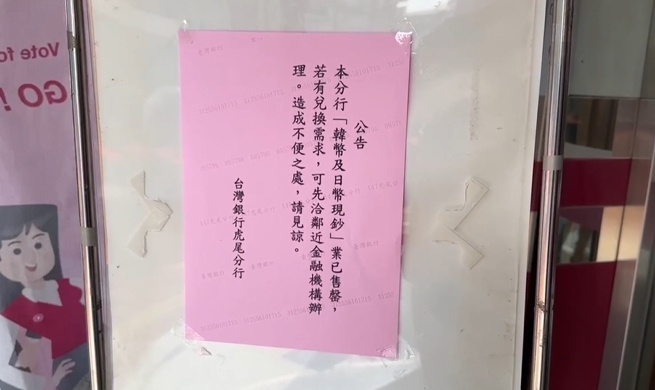 公告
本分行「韓幣及日幣現鈔」業已售罄，
若有兌換需求，可先洽鄰近金融機構辦
理。造成不便之處，請見諒。
台灣銀行虎尾分行
Vote fo
GO!